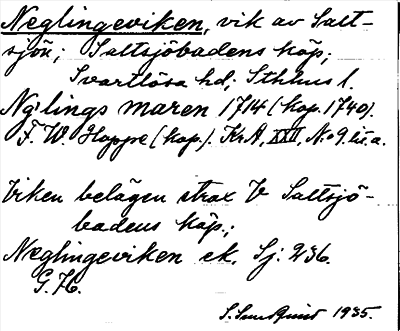 Neglingeviken, vik av Salt-
sjön; Saltsjöbadens köp;
Svartlösa hd; Sthlms l.
Ng:lings maren 1714 (kop. 1740).
F. W. Hoppe (kop.). KrA, XVII, No 9 lit. a.
Viken belägen strax V Saltsjö-
badens köp.;
Næglingeviken ek. Sj: 236.
G. H.
S. Sundquist 1935.